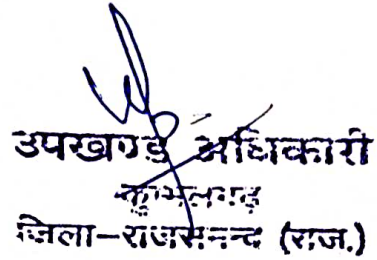 उपखण्ड अधिकारी
कुम्भलगढ़
जिला-राजसमन्द (राज.)